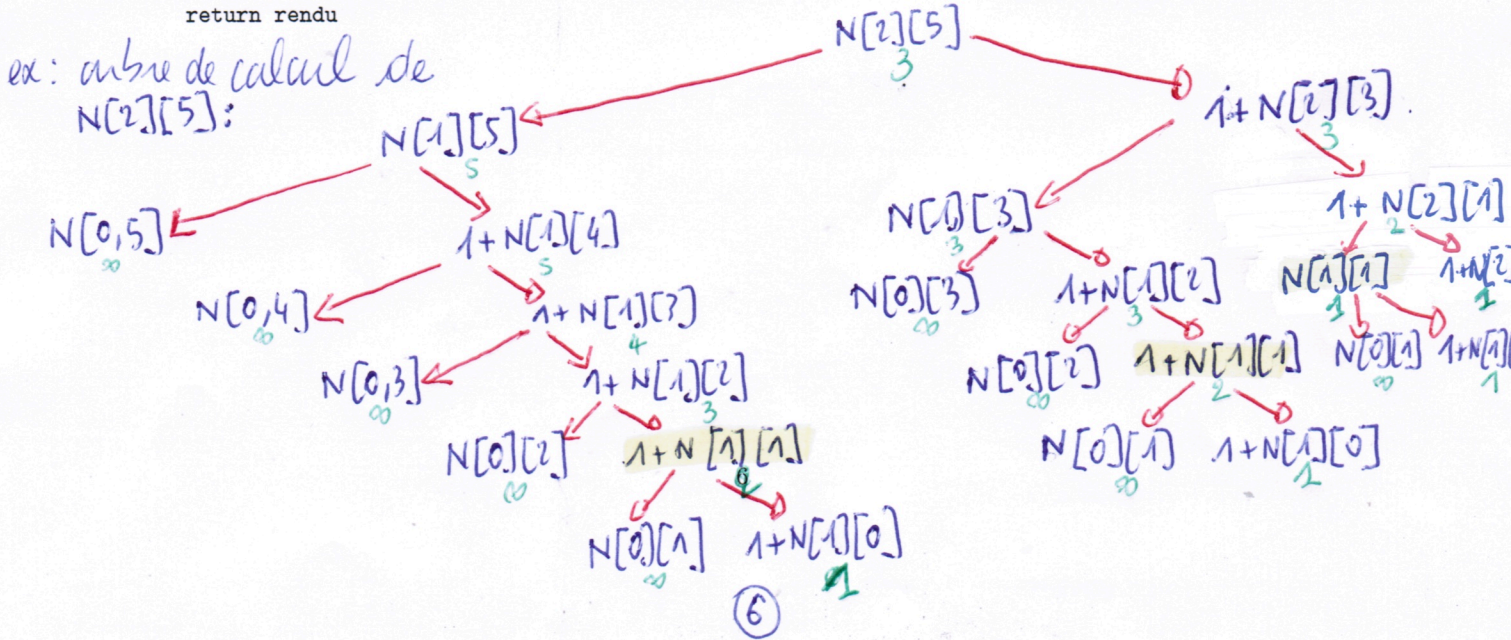 return rendu
ex: arbre de calcul de
N[2][5]:
N[2][5]
3
N[1][5]
5
1+N[2][3]
3
N[0,5]
∞
1+N[1][4]
5
N[1][3]
3
1+N[2][1]
2
N[0,4]
∞
1+N[1][3]
4
N[0][3]
∞
1+N[1][2]
3
N[1][1]
1
1+N[2]
1
N[0,3]
∞
1+N[1][2]
3
N[0][2]
∞
1+N[1][1]
2
N[0][1]
∞
1+N[1][
1
N[0][2]
∞
1+N[1][1]
N[0][1]
∞
1+N[1][0]
1
N[0][1]
∞
1+N[1][0]
1
6